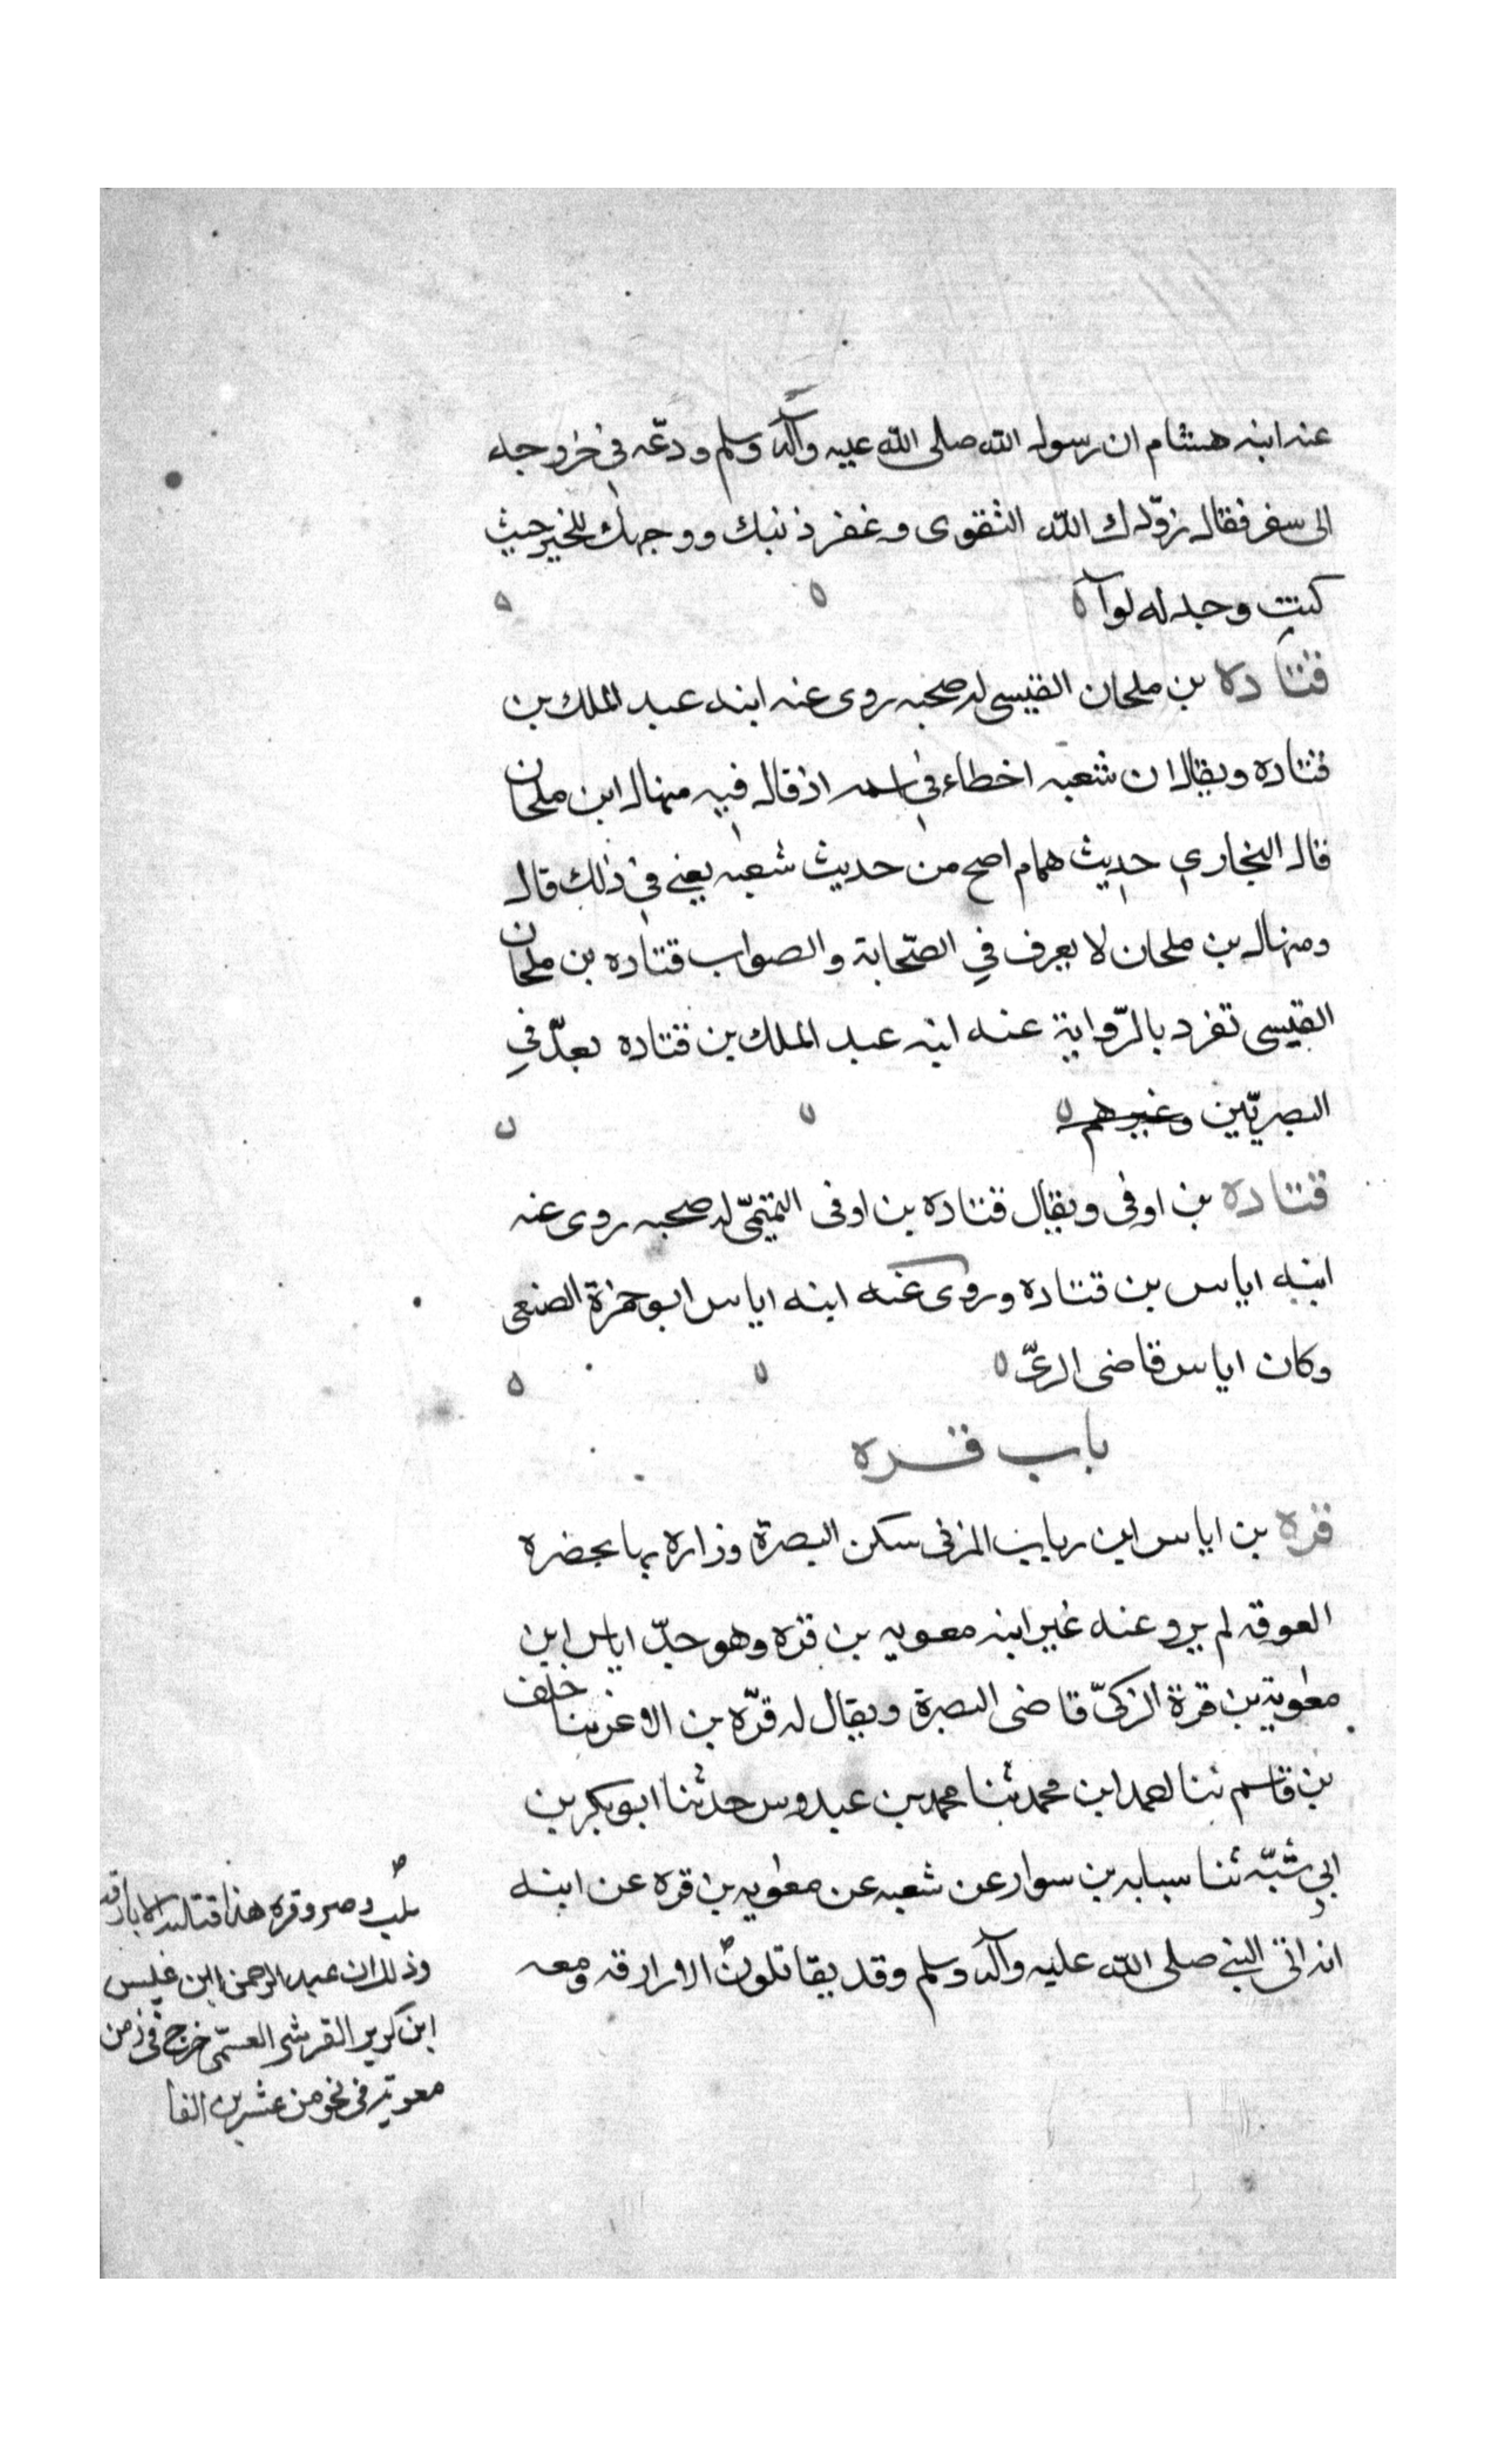 عنه ابنه هشام ان رسول الله صلى الله عليه وآله وسلم ودّعه في خروجه
الى سفر فقال زوّدك الله التقوى وغفر ذنبك ووجهك للخير حيث
كنت وجد له لوآ
قتاده بن ملحان القيسى له صحبه روى عنه ابنه عبد الملك بن
قتاده ويقال ان شعبه اخطاء في اسمه اذ قال فيه منهال ابن ملحان
قال البخارى حديث همام اصح من حديث شعبه يعنى في ذلك قال
ومنهال بن ملحان لا يعرف في الصّحابة والصواب قتاده بن ملحان
القيسى تفرد بالرّواية عنه ابنه عبد الملك بن قتاده يعدّ في
البصريّين وغيرهم
قتاده بن اوفى ويقال قتادة بن اوفى التميمّى له صحبه روى عنه
ابنه اياس بن قتاده وروى عنه ابنه اياس ابو حمزة الضبعى
وكان اياس قاضى الرىّ
باب قره
قره بن اياس ابن رياب المزنى سكن البصرة وداره بها بحضره
العوقه لم يرو عنه غير ابنه معويه بن قره وهو جدّ اياس ابن
معوية بن قرة الزكىّ قاضى البصرة ويقال له قرّه بن الاغر ثنا خلف
بن قاسم ثنا احمد ابن محمد ثنا محمد بن عبدوس حدثنا ابو بكر بن
ابي شيبّه ثنا سبابه بن سوار عن شعبه عن معويه بن قره عن ابنه
انه اتى النبى صلى الله عليه وآله وسلم وقد يقاتلون الازارقه ومعه
وقره هذا قتلته الازارقه
وذلك ان عبد الرحمن ابن عبيس
ابن كريز القرشى العبشمّى خرج في زمن
معوية في نحو من عشرين الفا